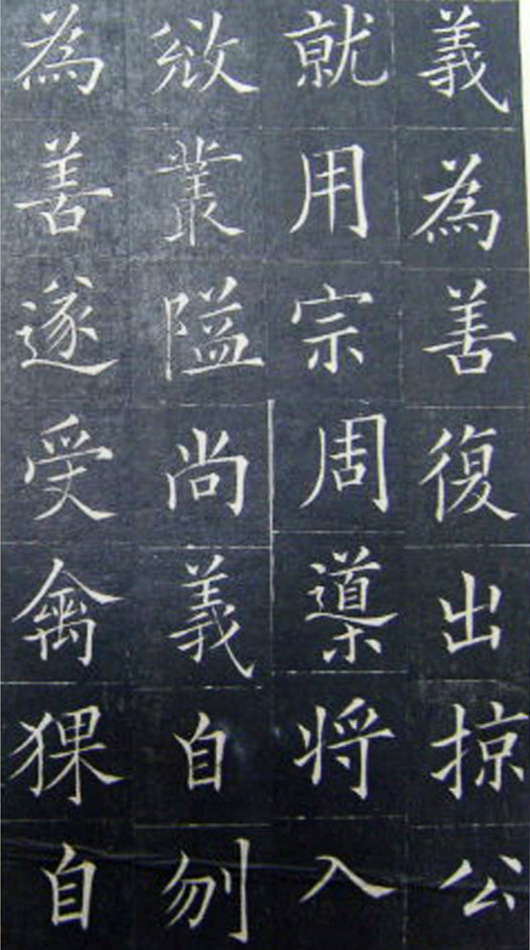 義為善復出掠公
就用宗周将入
叢隘尚義自刎
為善遂受禽猓自